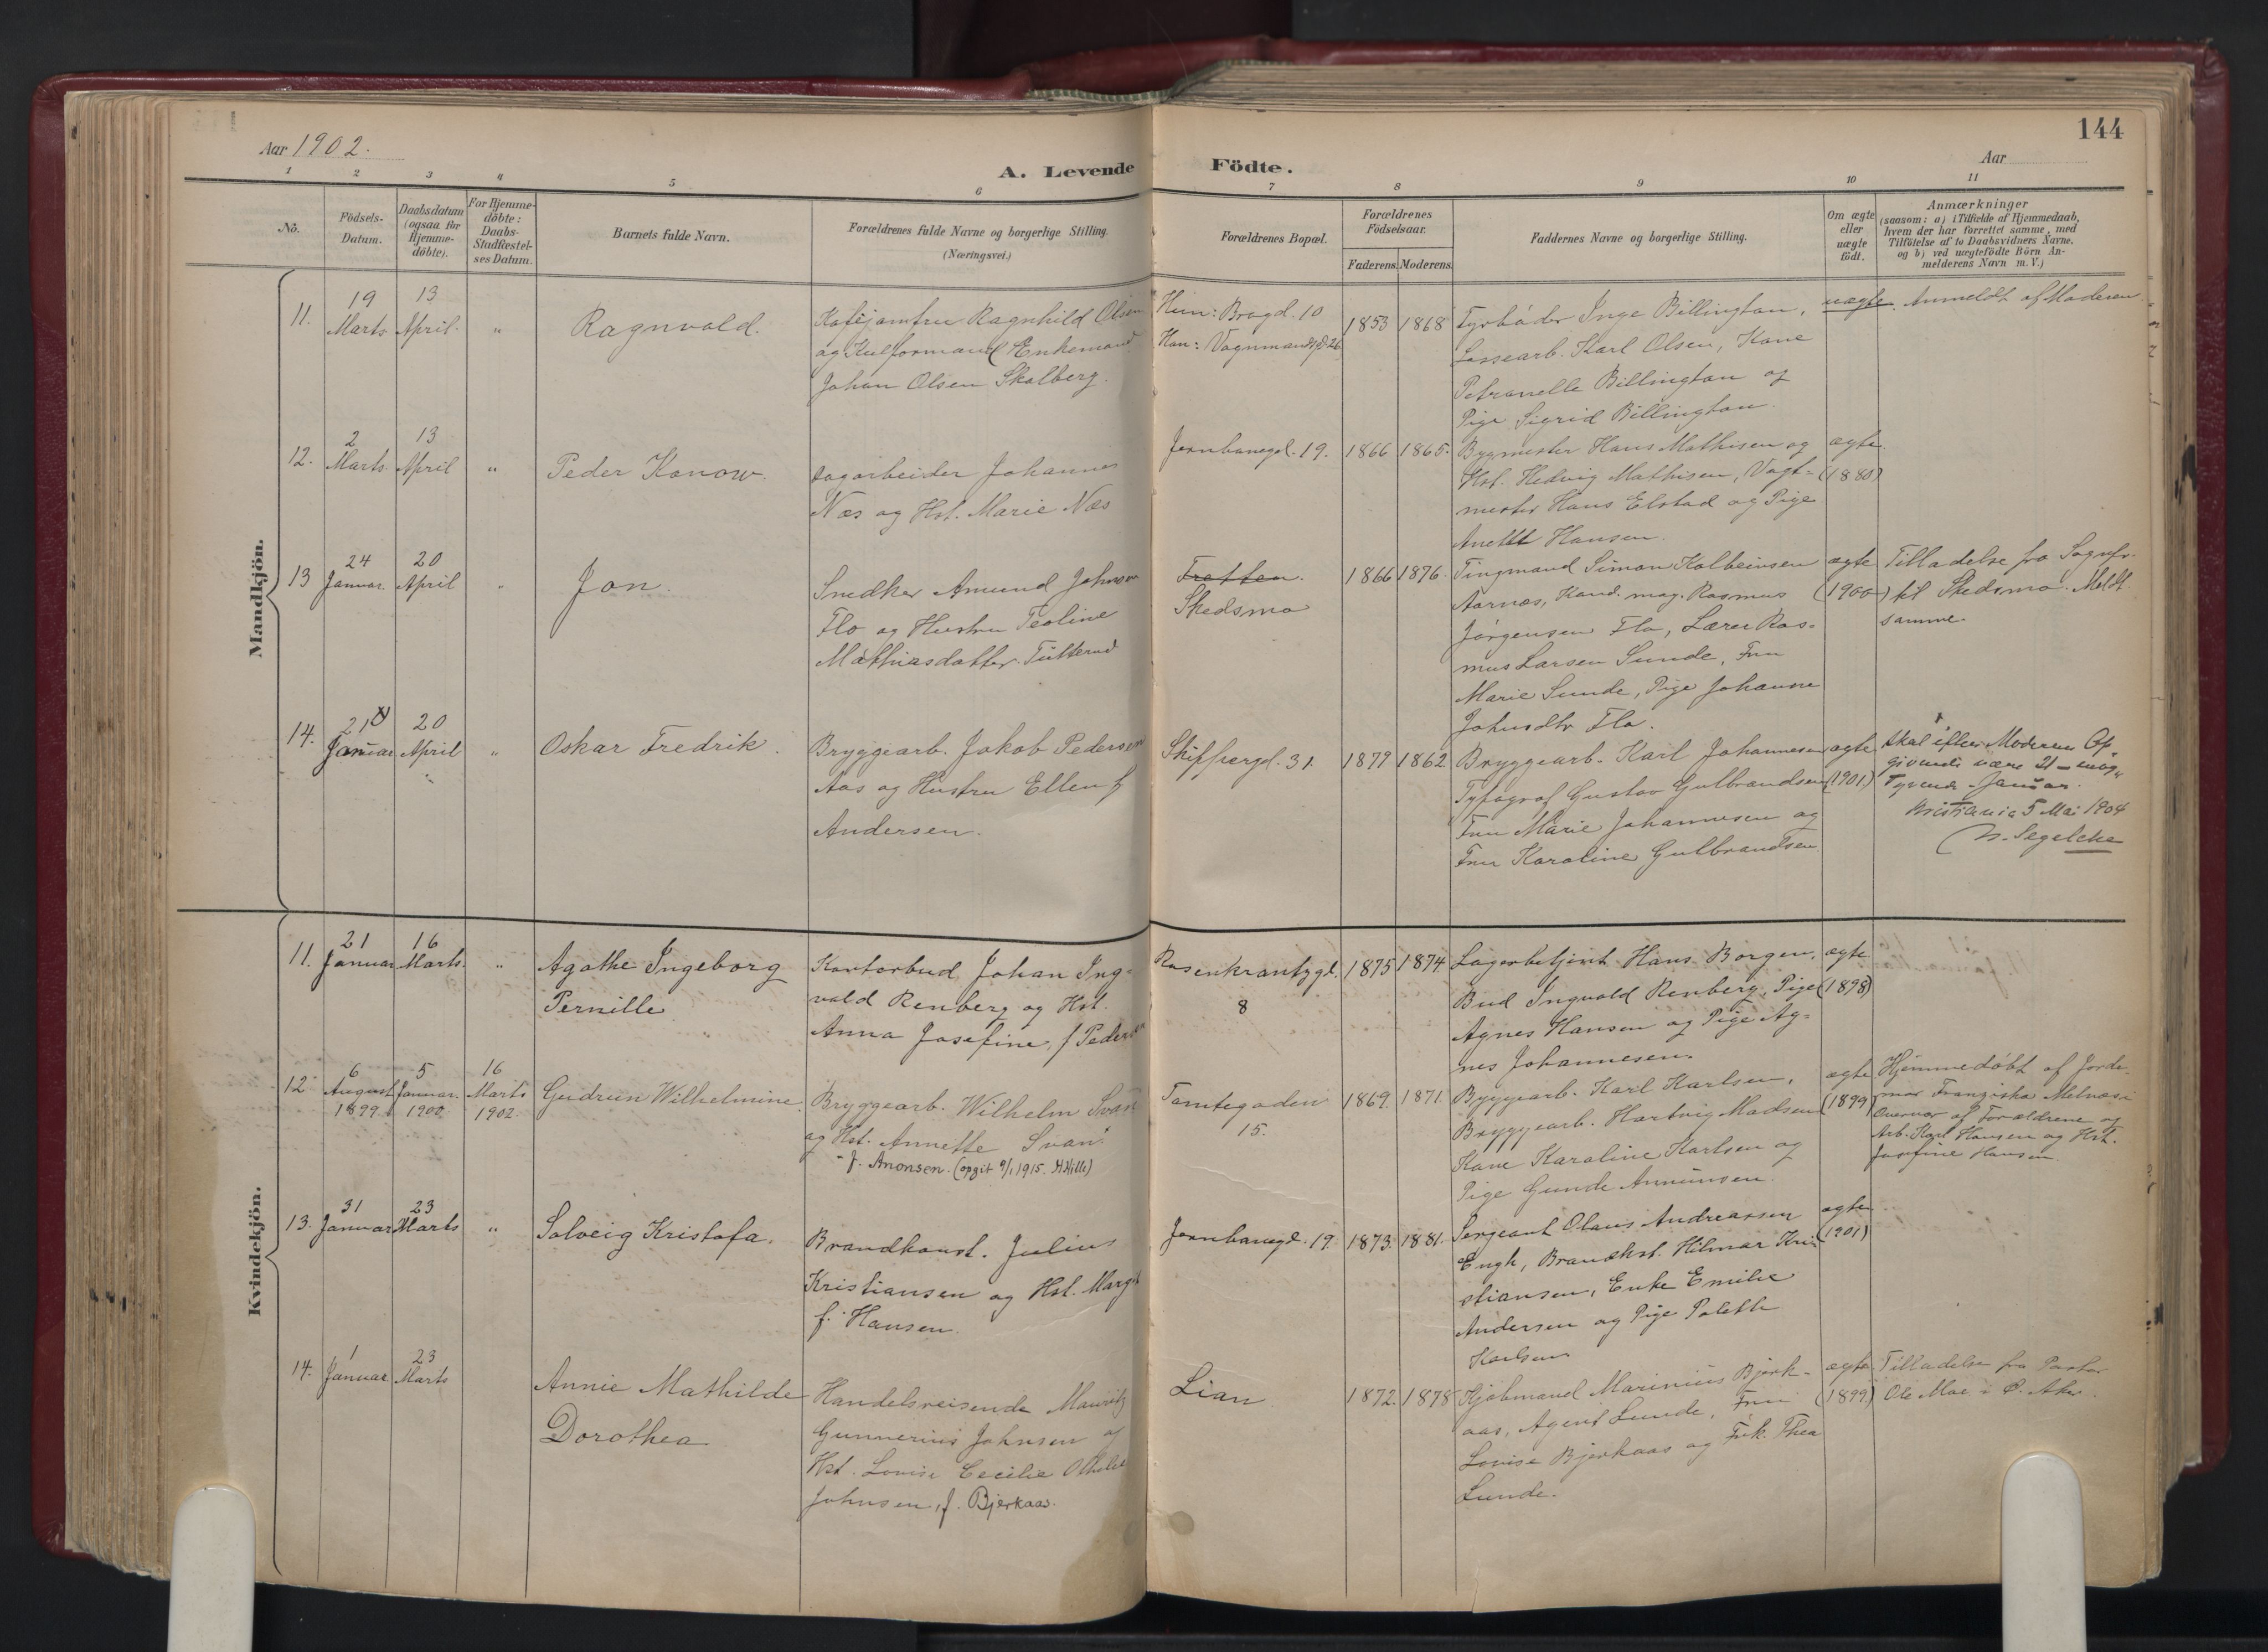 144
Aar 1902.
Aar
A. Levende Födte.
1 2 3 4 5 6 7 8 9 10 11
Nö.
Födsels-
Datum.
Daabsdatum
(ogsaa for
Hjemme-
döbte).
For Hjemme-
döbte:
Daabs-
Stadfæstel-
ses Datum.
Barnets fulde Navn.
Forældrenes fulde Navne og borgerlige Stilling.
(Næringsvei.)
Forældrenes Bopæl.
Forældrenes
Födselsaar.
Faderens. Moderens.
Faddernes Navne og borgerlige Stilling.
Om ægte
eller
uægte
födt.
Anmærkninger
(saasom: a) i Tilfælde af Hjemmedaab,
hvem der har forrettet samme, med
Tilföielse af to Daabsvidners Navne.
og b) ved uægtefödte Börn An-
melderens Navn m. V.)
Mandkjön.
11.
19
Marts
13
April.
"
Ragnvald.
Kaféjomfru Ragnhild Olsen
og Kulformand Enkemand
Johan Olsen Skalberg.
Hun: Brogd. 10
Han: Vognmandsgd 26
1853
1868
Fyrbøder Inge Billington,
Lossearb. Karl Olsen, Kone
Petronelle Billington og
Pige Sigrid Billington.
uægte.
Anmeldt af Moderen
12.
2
Marts
13
April
"
Peder Konow.
Dagarbeider Johannes
Næs og Hst. Marie Næs
Jernbanegd. 19.
1866
1865.
Bygmester Hans Mathisen og
Hst. Hedvig Mathisen, Vagt-
mester Hans Elstad og Pige
Anette Hansen.
ægte.
(1880)
13
24
Januar.
20
April
"
Jon.
Snedker Amund Johnson
Flo og Hustru Teoline
Mathiasdatter Tutterud
Tretten.
Skedsmo
1866
1876.
Tingmand Simon Kolbeinsen
Aarnæs, Kand. mag. Rasmus
Jörgensen Flo, Lærer Ras-
mus Larsen Sunde, Fru
Marie Sunde, Pige Johanne
Johnsdtr Flo.
ægte
(1900)
Tilladelse fra Sognepr.
til Skedsmo. Meldt
samme.
14.
21
Januar
20
April
"
Oskar Fredrik.
Bryggearb. Jakob Pedersen
Aas og Hustru Ellen f
Andersen.
Skippergd. 31.
1879
1862
Bryggearb. Karl Johannesen
Typograf Gustav Gulbrandsen
Fru Marie Johannesen og
Fru Karoline Gulbrandsen
ægte
(1901)
skal efter Moderens Op-
givende være 21 - enog-
tyvende - Januar.
Kristiania 5 Mai 1904
N. Segelcke
Kvindekjön.
11.
21
Januar
16
Marts.
"
Agathe Ingeborg
Pernille
Kontorbud Johan Ing-
vald Renberg og Hst.
Anna Josefine, f Pedersen
Rosenkrantzgd.
8
1875
1874
Lagerbetjent Hans Borgen,
Bud Ingvald Renberg, Pige
Agnes Hansen og Pige Ag-
nes Johannesen.
ægte
(1898)
12
6
August
1899.
5
Januar.
1900.
16
Marts
1902.
Gudrun Wilhelmine.
Bryggearb. Wilhelm Svan
og Hst. Annette Svan
f. Anonsen. (opgit 9/1 1915. H Hille)
Tomtegaden
15.
1869.
1871.
Byggearb. Karl Karlsen,
Bryggearb. Hartvig Madsen
Kone Karoline Karlsen og
Pige Gunde Annunsen.
ægte
(1899)
Hjemmedöbt af Jorde-
mor Franziska Melnæs i
Overvær af Forældrene og
Arb. Karl Hansen og Hst.
Josefine Hansen.
13.
31
Januar
23
Marts
"
Solveig Kristofa.
Brandkonst. Julius
Kristiansen og Hst. Margit
f. Hansen.
Jernbanegd. 19.
1873.
1881.
Sergeant Olaus Andreassen
Engh, Brandkst. Hilmar Kri-
stiansen, Enke Emilie
Andersen og Pige Poleth
Karlsen
ægte
(1901)
14.
1
Januar
23
Marts
Annie Mathilde
Dorothea
Handelsreisende Mauritz
Gunnerius Johnsen og
Hst. Lovise Cecilie Othelie
Johnsen, f. Bjerkaas.
Lian
1872.
1878
Kjöbmand Marinius Bjerk-
aas, Agent Lunde, Fru
Lovise Bjerkaas og Frk. Thea
Lunde.
ægte
(1899.)
Tilladelse fra Pastor
Ole Moe i Ø. Aker.